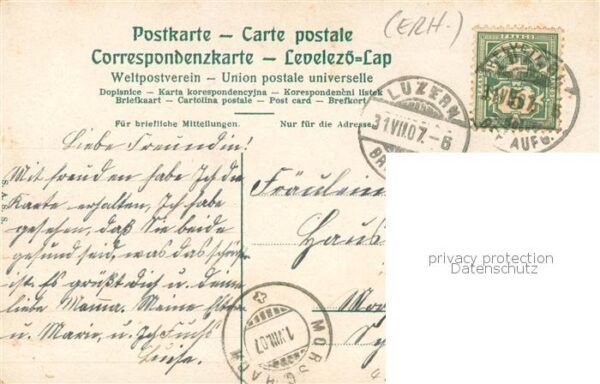 (ERH.)
Postkarte — Carte postale
Correspondenzkarte — Levelező-Lap
Weltpostverein — Union postale universelle
Dopisnice — Karta korespondencyjna — Korespondenční lístek
Briefkaart — Cartolina postale — Post card — Brefkort
Für briefliche Mitteilungen.
Nur für die Adresse
FRANCO
5
LUZERN
31.VII.07.-6
AUFG.
Liebe Freundin!
Mit Freuden habe Ich die
Karte erhalten, Ich habe
gesehen, daß Sie beide
gesund seid, was das schönste
ist. Es grüßt dich u. deine
liebe Mamma. Meine Eltern
u. Marie, u. Ich Fuchs
Luise.
Fräulein
Haus
privacy protection
Datenschutz
MÖRSCHWACH
1.VIII.07